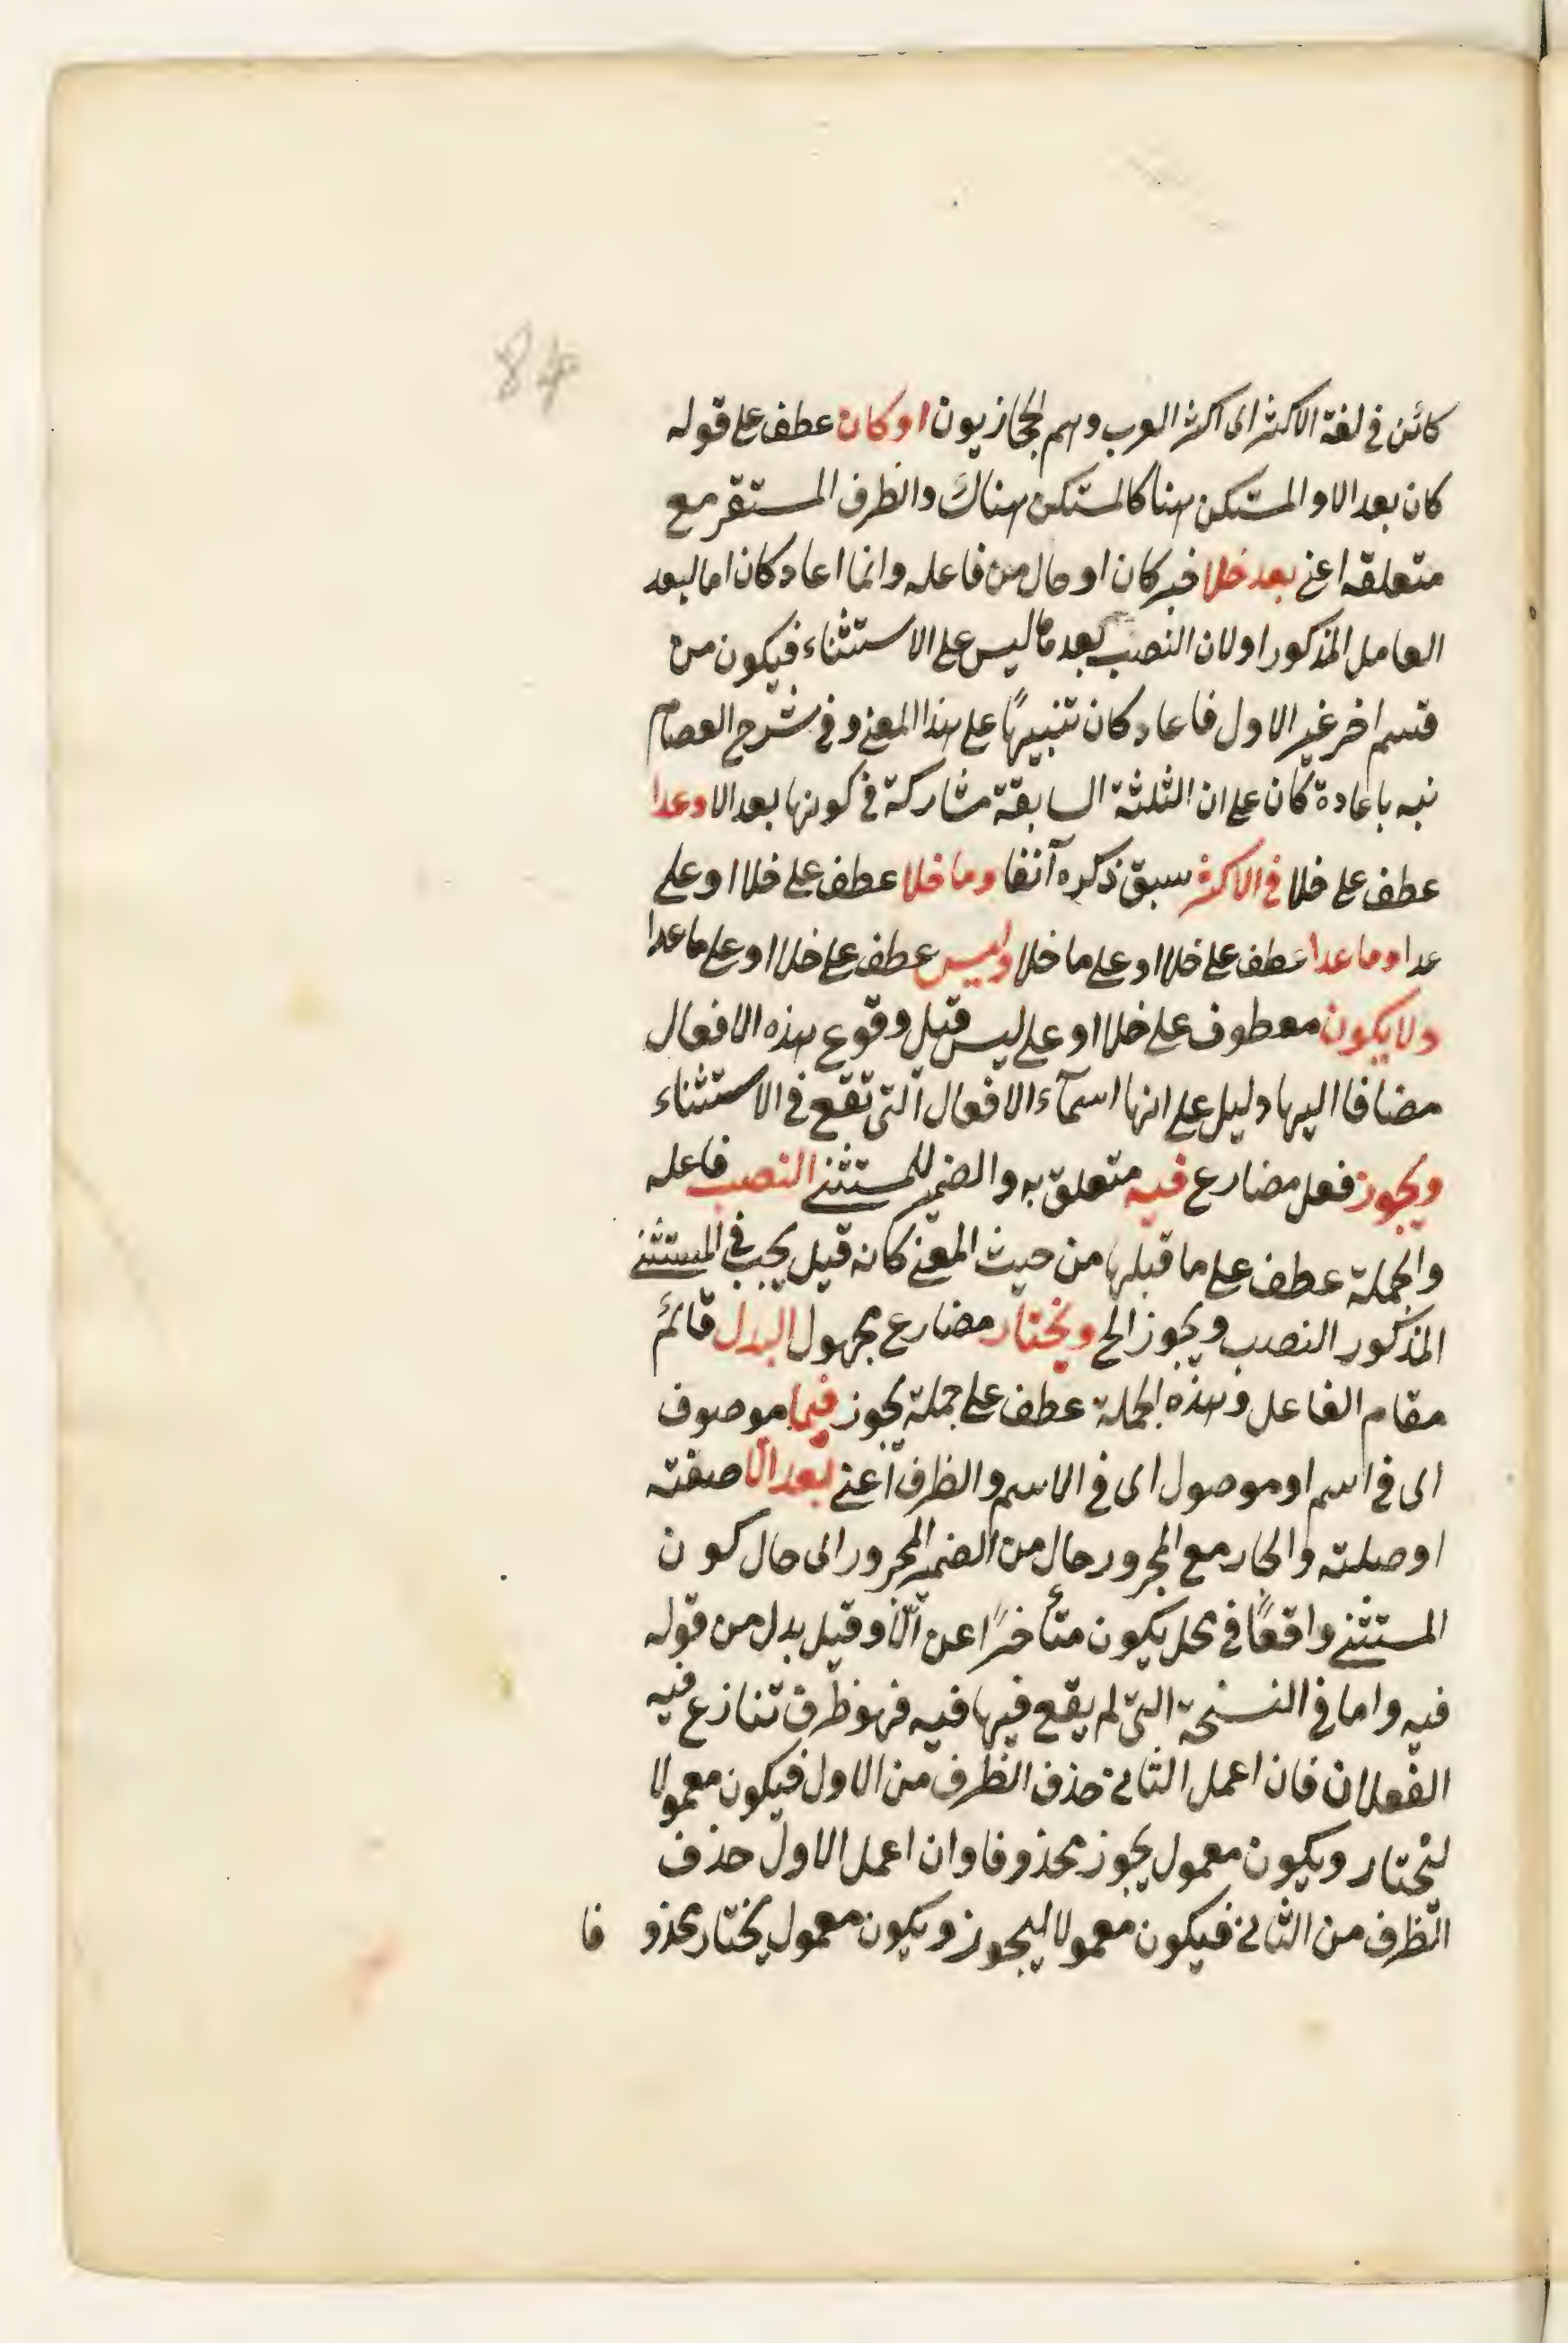 84
كائن في لغة الاكثر اى اكثر العرب وهم الحجازيون او كان عطف على قوله
كان بعد الا والمستكن هنا كالمستكن هناك والظرف المستقر مع
متعلقه اعني بعد خلا خبر كان او حال من فاعله وانما اعاد كان اما لبعد
العامل المذكور او لان النصب بعد ما ليس على الاستثناء فيكون من
قسم اخر غير الاول فاعاد كان تنبيهًا على هذا المعنى وفي شرح العصام
نبه باعادة كان على ان الثلثة السابقة مشاركة في كونها بعد الا وعدا
عطف على خلا في الاكثر سبق ذكره آنفا وما خلا عطف على خلا او على
عدا وما عدا عطف على خلا او على ما خلا وليس عطف على خلا او على ما عدا
ولا يكون معطوف على خلا او على ليس قيل وقوع هذه الافعال
مضافا اليها دليل على انها اسمآء الافعال التي تقع في الاستثناء
ويجوز فعل مضارع فيه متعلق به والضمير للمستثنى النصب فاعله
والجملة عطف على ما قبلها من حيث المعنى كانه قيل يجب في المستثنى
المذكور النصب ويجوز الح ويختار مضارع مجهول البدل قائم
مقام الفاعل وهذه الجملة عطف على جملة يجوز فيما موصوف
اى في اسم او موصول اى في الاسم والظرف اعني بعد الّا صفته
او صلته والجار مع المجرور حال من الضمير المجرور اى حال كون
المستثنى واقعًا في محل يكون متأخرًا عن الّا وقيل بدل من قوله
فيه واما في النسخة التي لم يقع فيها فيه فهو ظرف تنازع فيه
الفعلان فان اعمل الثاني حذف الظرف من الاول فيكون معمولا
ليختار ويكون معمول يجوز محذوفا وان اعمل الاول حذف
الظرف من الثاني فيكون معمولا ليجوز ويكون معمول يختار محذو فا